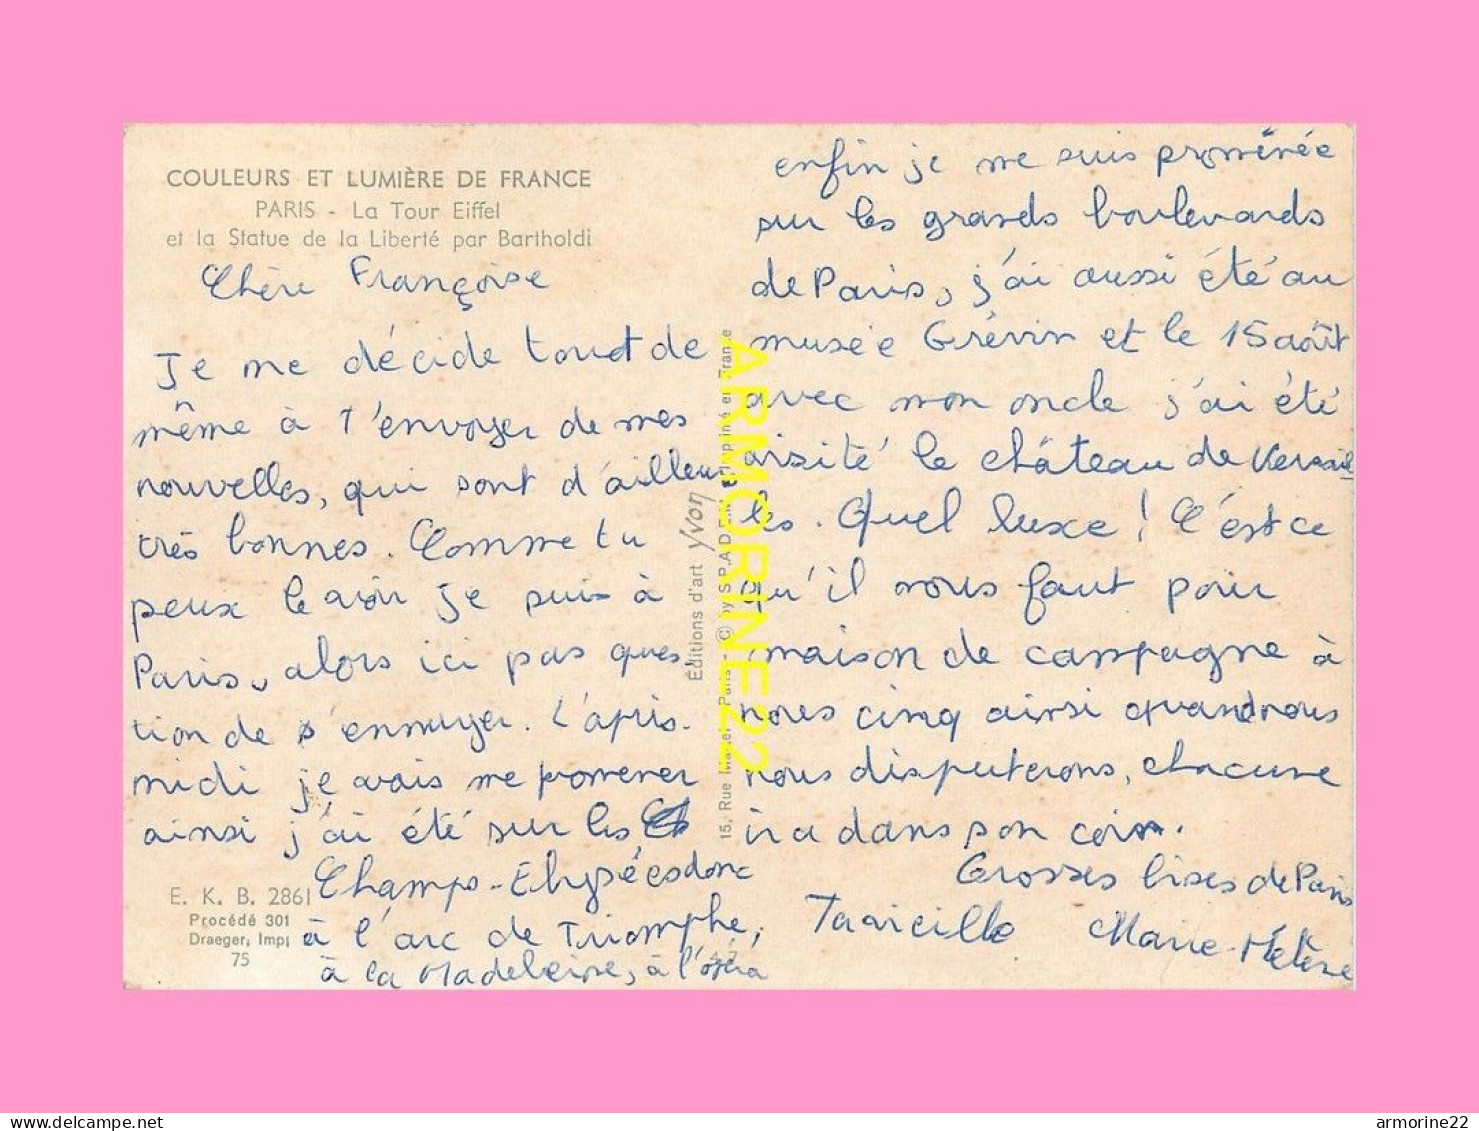 COULEURS ET LUMIÈRE DE FRANCE
PARIS - La Tour Eiffel
et la Statue de la Liberté par Bartholdi
Chère Françoise
Je me décide tout de
même à t'envoyer de mes
nouvelles, qui sont d'ailleurs
très bonnes. Comme tu
peux le voir je suis à
Paris, alors ici pas ques-
tion de s'ennuyer. L'après-
midi je vais me promener
ainsi j'ai été sur les
Champs-Elysées donc
à l'arc de Triomphe,
à la Madeleine, à l'opéra
E. K. B. 2861
Procédé 301
Draeger, Imp;
75
Éditions d'art Yvon
15, Rue Martel Paris - © by S.P.A.D.E.M. Imprimé en France
enfin je me suis promenée
sur les grands boulevards
de Paris, j'ai aussi été au
musée Grévin et le 15 août
avec mon oncle j'ai été
visité le château de Versail
les. Quel luxe ! C'est ce
qu'il nous faut pour
maison de campagne à
nous cinq ainsi quand nous
nous disputerons, chacune
ira dans son coin.
Grosses bises de Paris
Ta vieille Marie-Hélène
ARMORINE22
https://www.delcampe.net
armorine22